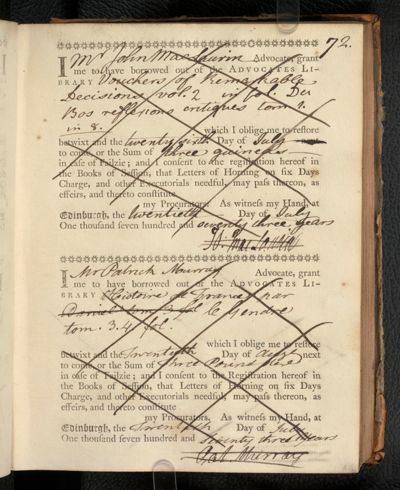 72.
I Mr John MacLaurin Advocate, grant
me to have borrowed out of the ADVOCATES LI-
BRARY Vouchers of Remarkable
Decisions vol. 2 in fol. Du
Bos reflexions critiques tom 1.
in 8. which I oblige me to restore
betwixt and the twenty sixth Day of July
to come, or the Sum of three guineas
in case of Failzie; and I consent to the registration hereof in
the Books of Session, that Letters of Horning on six Days
Charge, and other Executorials needful, may pass thereon, as
effeirs, and thereto constitute
my Procurators. As witness my Hand, at
Edinburgh, the twentieth Day of July
One thousand seven hundred and seventy three years
Jo: MacLaurin
I Mr Patrick Murray Advocate, grant
me to have borrowed out of the ADVOCATES LI-
BRARY Histoire de France par
Daniel tom le Gendre
tom. 3. 4 fol.
which I oblige me to restore
betwixt and the Twentieth Day of Augt next
to come, or the Sum of three Pound
in case of Failzie; and I consent to the Registration hereof in
the Books of Session, that Letters of Horning on six Days
Charge, and other Executorials needful, may pass thereon, as
effeirs, and thereto constitute
my Procurators. As witness my Hand, at
Edinburgh, the Twentieth Day of July
One thousand seven hundred and seventy three years
Pat. Murray